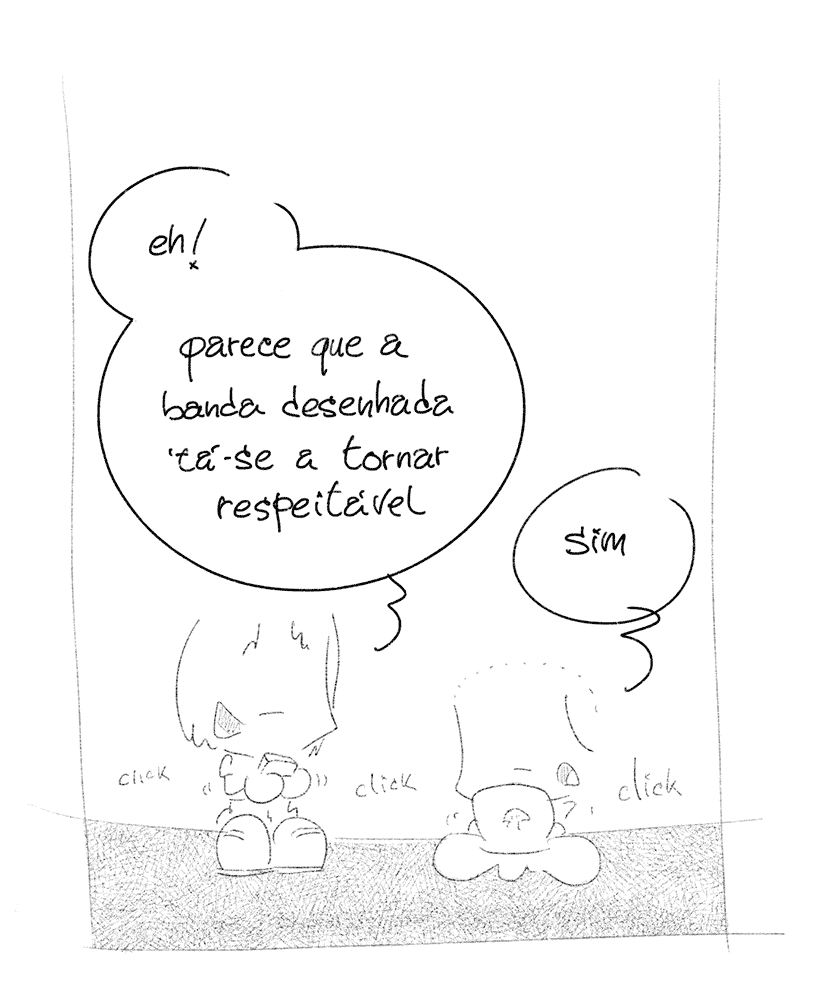 eh!
parece que a
banda desenhada
'tá-se a tornar
respeitável
sim
click
click
click